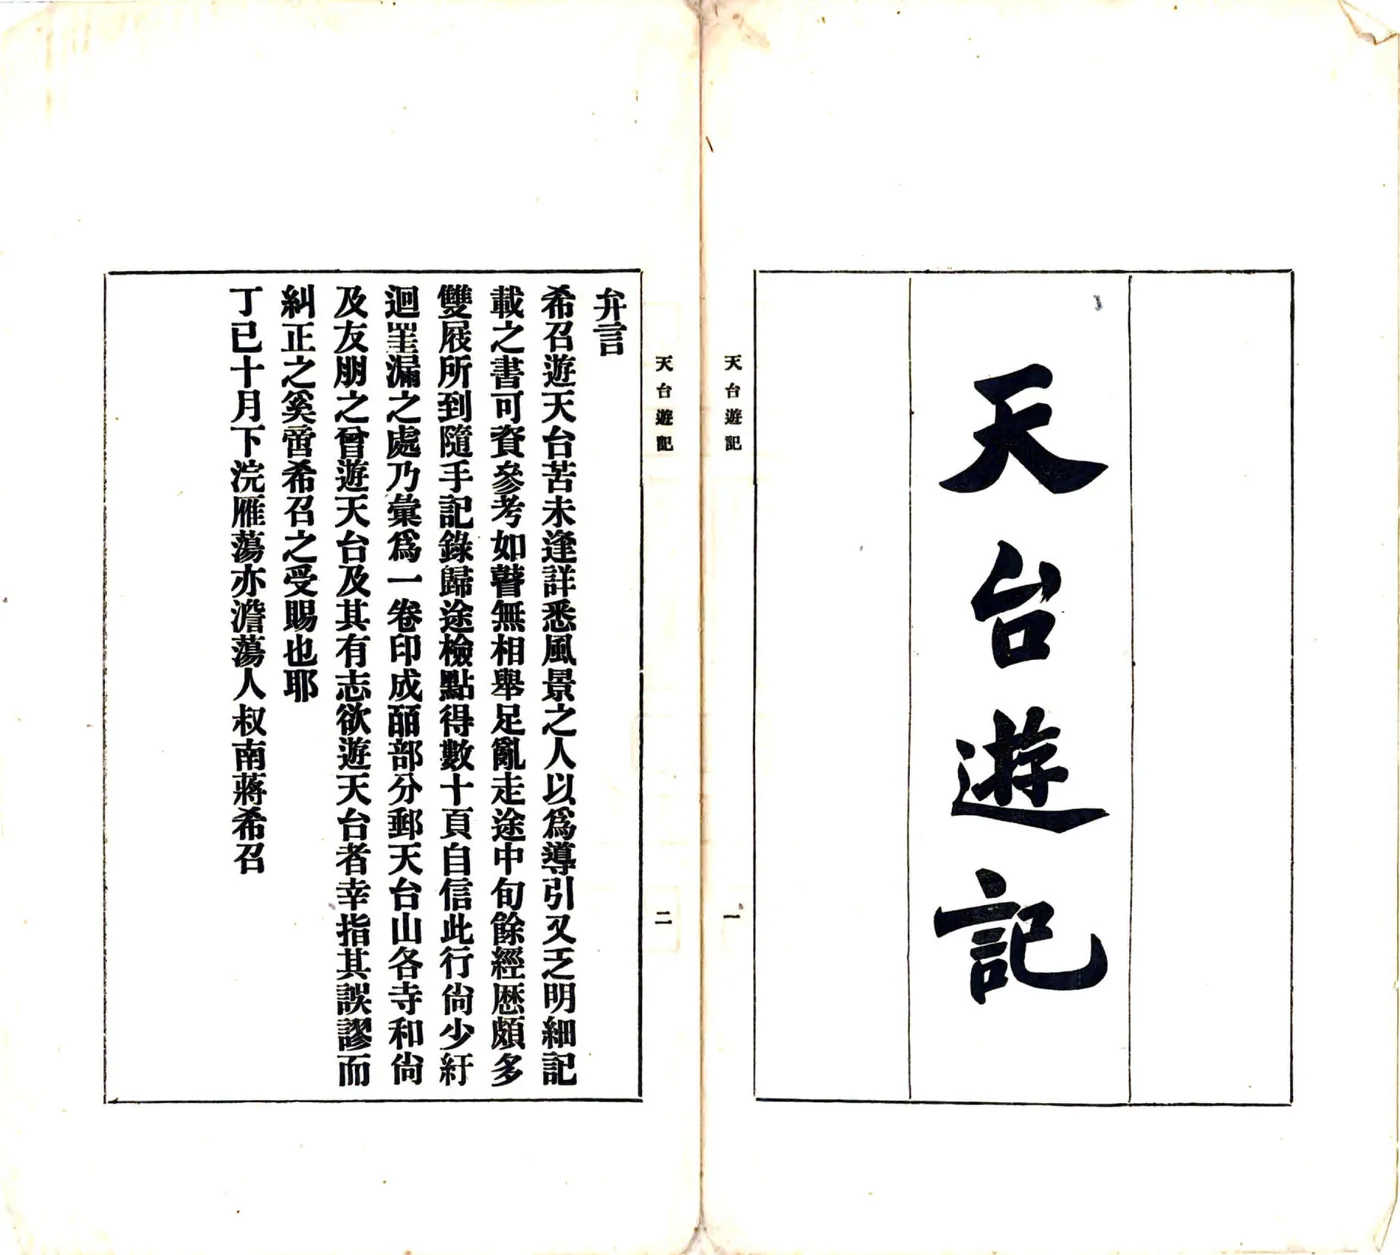 天台遊記
天台遊記
一
天台遊記
二
弁言
希召遊天台苦未逢詳悉風景之人以爲導引又乏明細記
載之書可資參考如瞽無相舉足亂走途中旬餘經歷頗多
雙屐所到隨手記錄歸途檢點得數十頁自信此行尙少紆
迴罣漏之處乃彙爲一卷印成皕部分郵天台山各寺和尙
及友朋之曾遊天台及其有志欲遊天台者幸指其誤謬而
糾正之奚啻希召之受賜也耶
丁巳十月下浣雁蕩亦澹蕩人叔南蔣希召